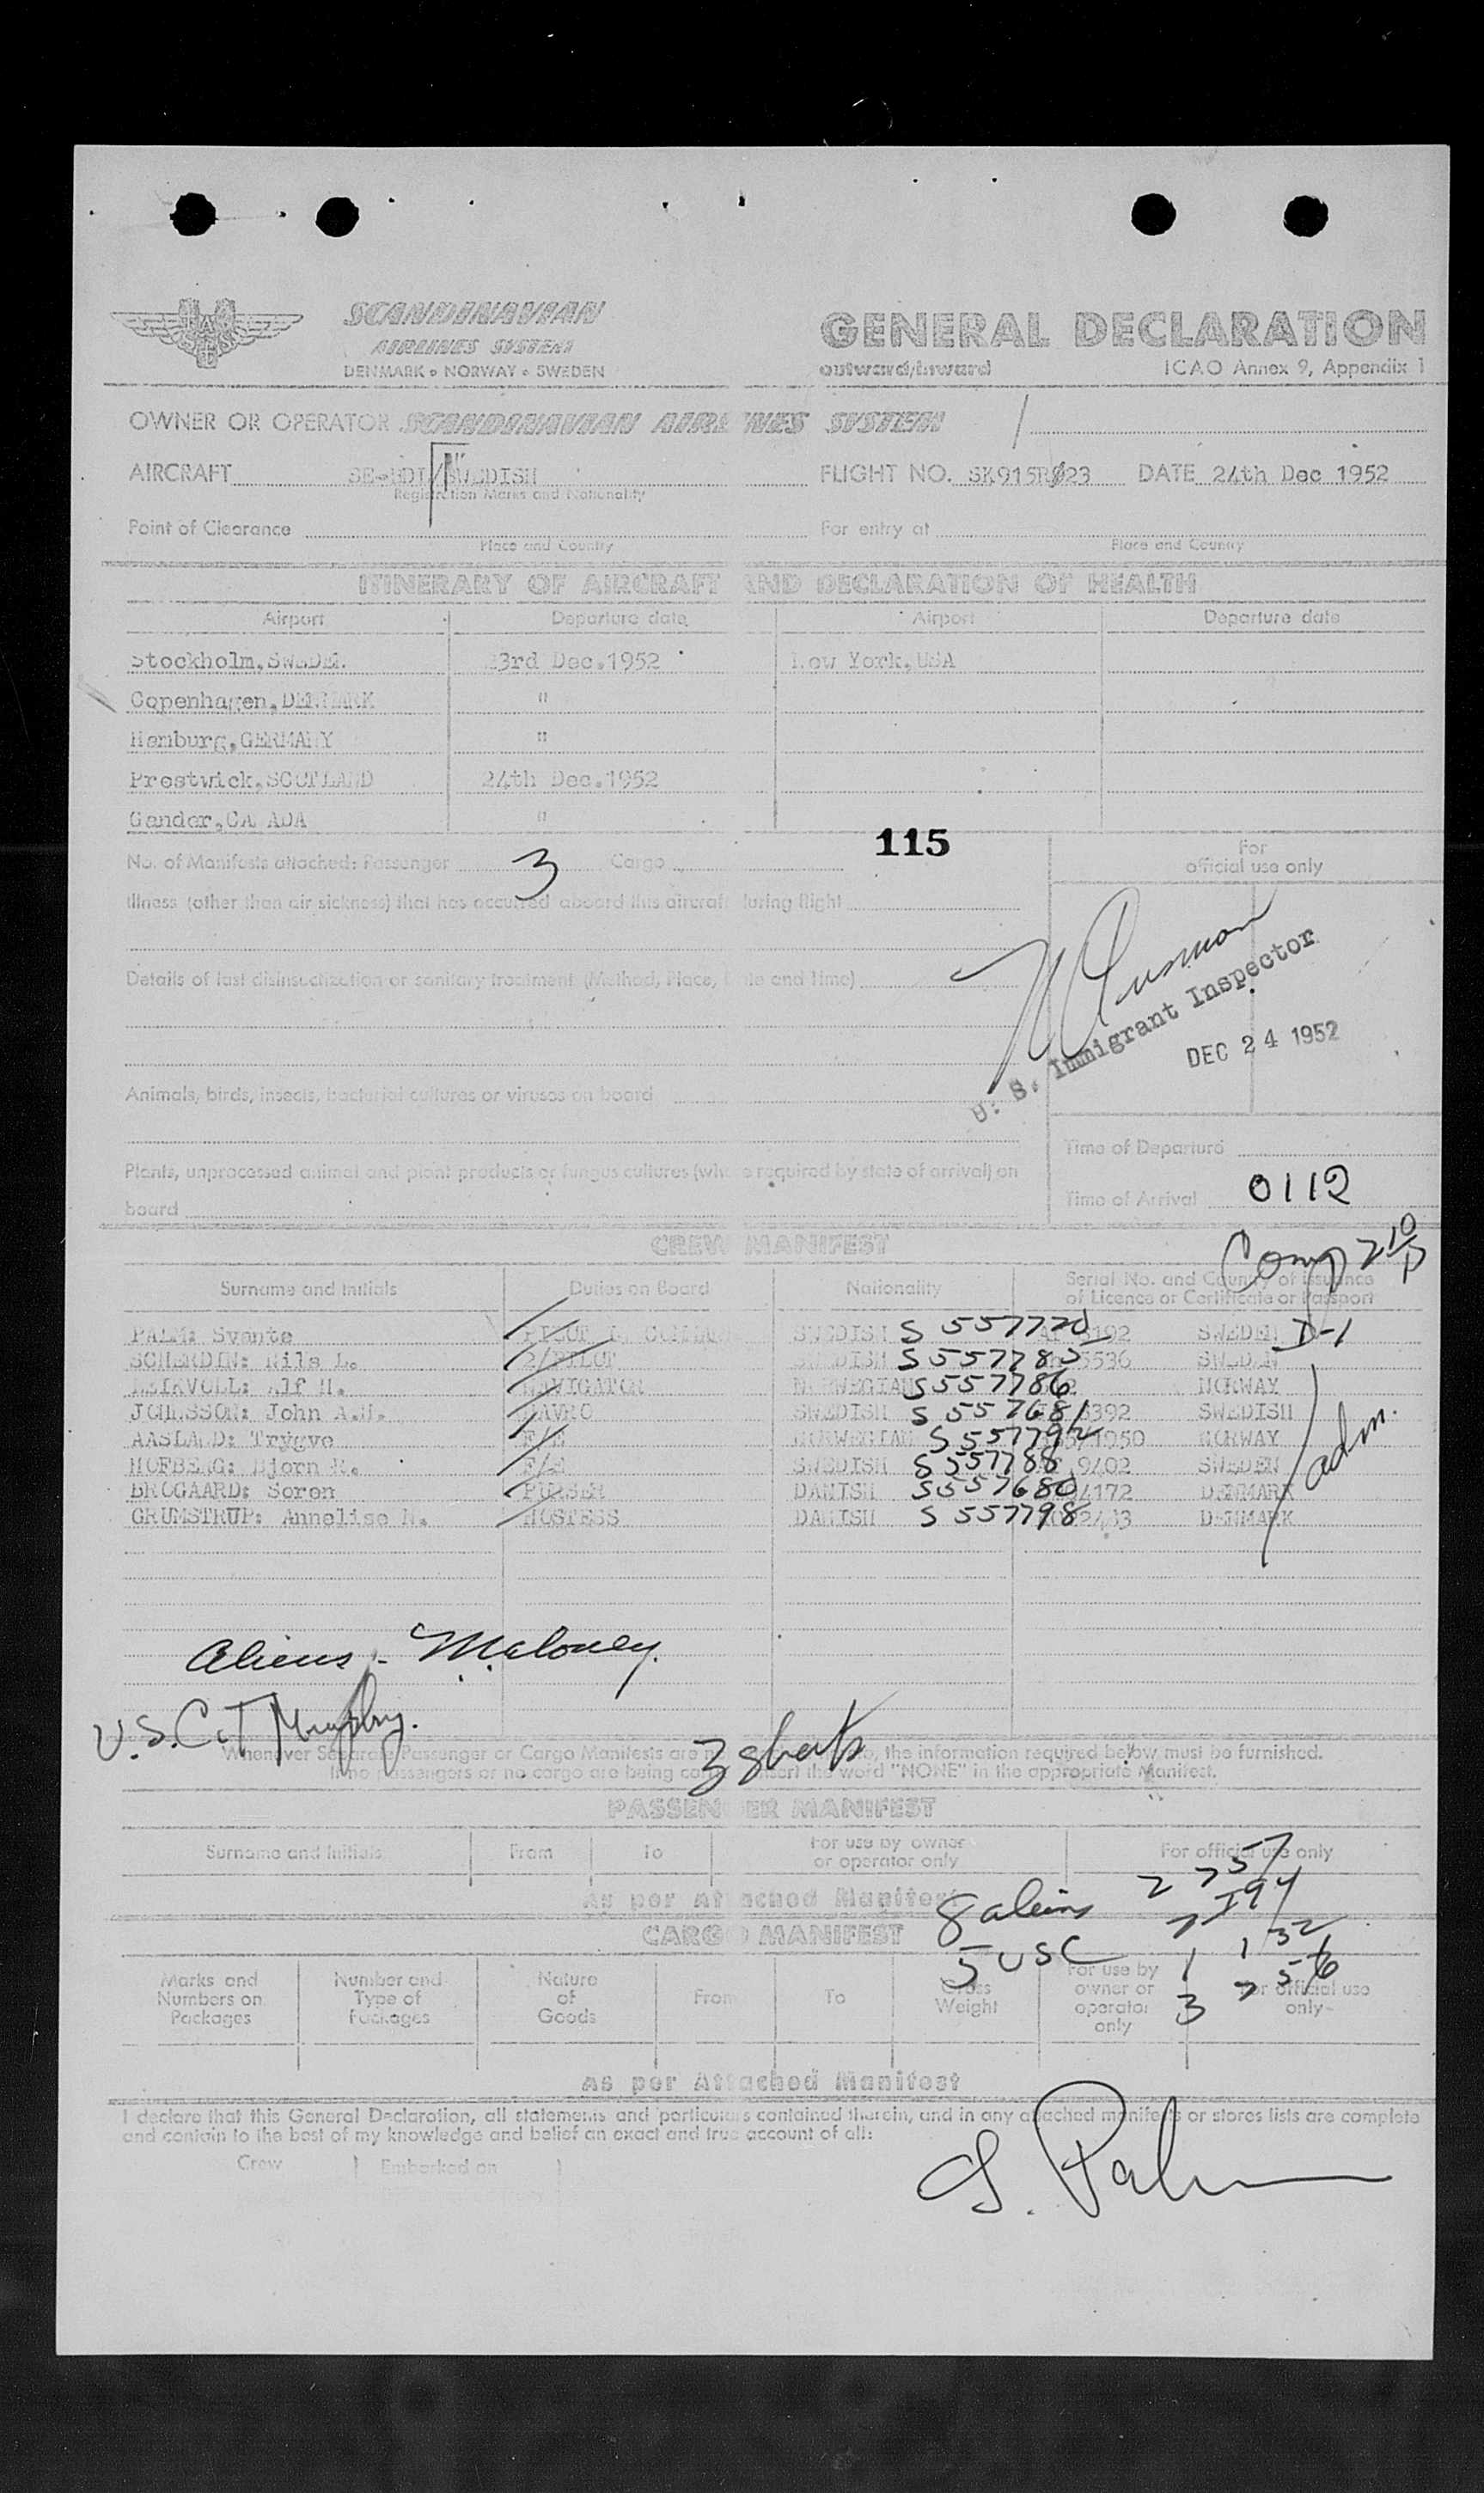 SCANDINAVIAN
AIRLINES SYSTEM
DENMARK • NORWAY • SWEDEN
GENERAL DECLARATION
outward/inward
ICAO Annex 9, Appendix 1
OWNER OR OPERATOR SCANDINAVIAN AIRLINES SYSTEM
AIRCRAFT SWEDISH FLIGHT NO. DATE 24th Dec 1952
Registration Marks and Nationality
Point of Clearance For entry at
Place and Country Place and Country
ITINERARY OF AIRCRAFT AND DECLARATION OF HEALTH
Airport Departure date Airport Departure date
Stockholm, SWEDEN. 23rd Dec.1952 New York, USA
Copenhagen, DENMARK "
Hamburg, GERMANY "
Prestwick, SCOTLAND 24th Dec.1952
Gander, CANADA "
115
No. of Manifests attached: Passenger 3 Cargo
For
official use only
Illness (other than air sickness) that has occurred aboard this aircraft during flight
Details of last disinsectization or sanitary treatment (Method, Place, Date and Time)
U. S. Immigrant Inspector
DEC 24 1952
Animals, birds, insects, bacterial cultures or viruses on board
Plants, unprocessed animal and plant products or fungus cultures (where required by state of arrival) on
board
Time of Departure
Time of Arrival 0112
CREW MANIFEST
Comp 2
Surname and Initials Duties on Board Nationality Serial No. and Country of Issuance
of Licence or Certificate or Passport
PALM: Svante PILOT SWEDISH S 557770 SWEDEN D-1
SCHERDIN: Nils L. 2/PILOT SWEDISH S557785 5536 SWEDEN
Alf H. NAVIGATOR NORWEGIAN S557786 NORWAY
JOHNSSON: John A.H. NAV/RO SWEDISH S 557681 SWEDISH
AASLAND: Trygve F/E NORWEGIAN S 557792 NORWAY
HOFBERG: Bjorn F/E SWEDISH S557788 9402 SWEDEN
BROGAARD: Soren PURSER DANISH S557680 4172 DENMARK
GRUMSTRUP: Annelise N. HOSTESS DANISH S 557798 DENMARK
adm.
Aliens - Maloney.
U.S.Cit Murphy.
3 sheets
Whenever Separate Passenger or Cargo Manifests are the information required below must be furnished.
If no passengers or no cargo are being carried insert the word "NONE" in the appropriate Manifest.
PASSENGER MANIFEST
Surname and Initials From To For use by owner
or operator only For official use only
As per attached Manifest
8 aliens
2 257
7 I94
CARGO MANIFEST
5 USC
1 132
3 256
Marks and
Numbers on
Packages
Number and
Type of
Packages
Nature
of
Goods
From To
Gross
Weight
For use by
owner or
operator
only
For official use
only
As per Attached Manifest
I declare that this General Declaration, all statements and particulars contained therein, and in any attached manifests or stores lists are complete
and contain to the best of my knowledge and belief an exact and true account of all:
Crew Embarked on
S. Palm